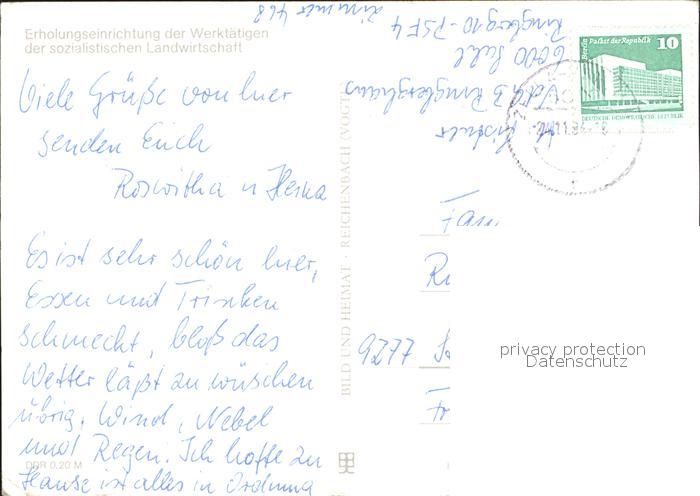 Erholungseinrichtung der Werktätigen
der sozialistischen Landwirtschaft
Viele Grüße von hier
senden Euch
Roswitha u Herta
Es ist sehr schön hier,
Essen und Trinken
schmeckt, bloß das
Wetter läßt zu wünschen
übrig. Wind, Nebel
und Regen. Ich hoffe zu
Hause ist alles in Ordnung
DDR 0,20 M
BILD UND HEIMAT · REICHENBACH (VOGTL)
VdgB Ringberghaus
6000 Suhl
Ringberg 10 - PSF 4
Zimmer 468
Berlin Palast der Republik
10
DEUTSCHE DEMOKRATISCHE REPUBLIK
Fam
9277
privacy protection
Datenschutz